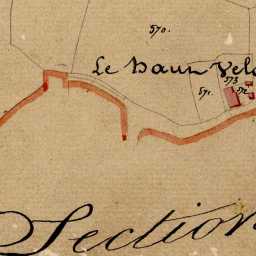 570.
Le Haut Vel
573
571. 572
Section